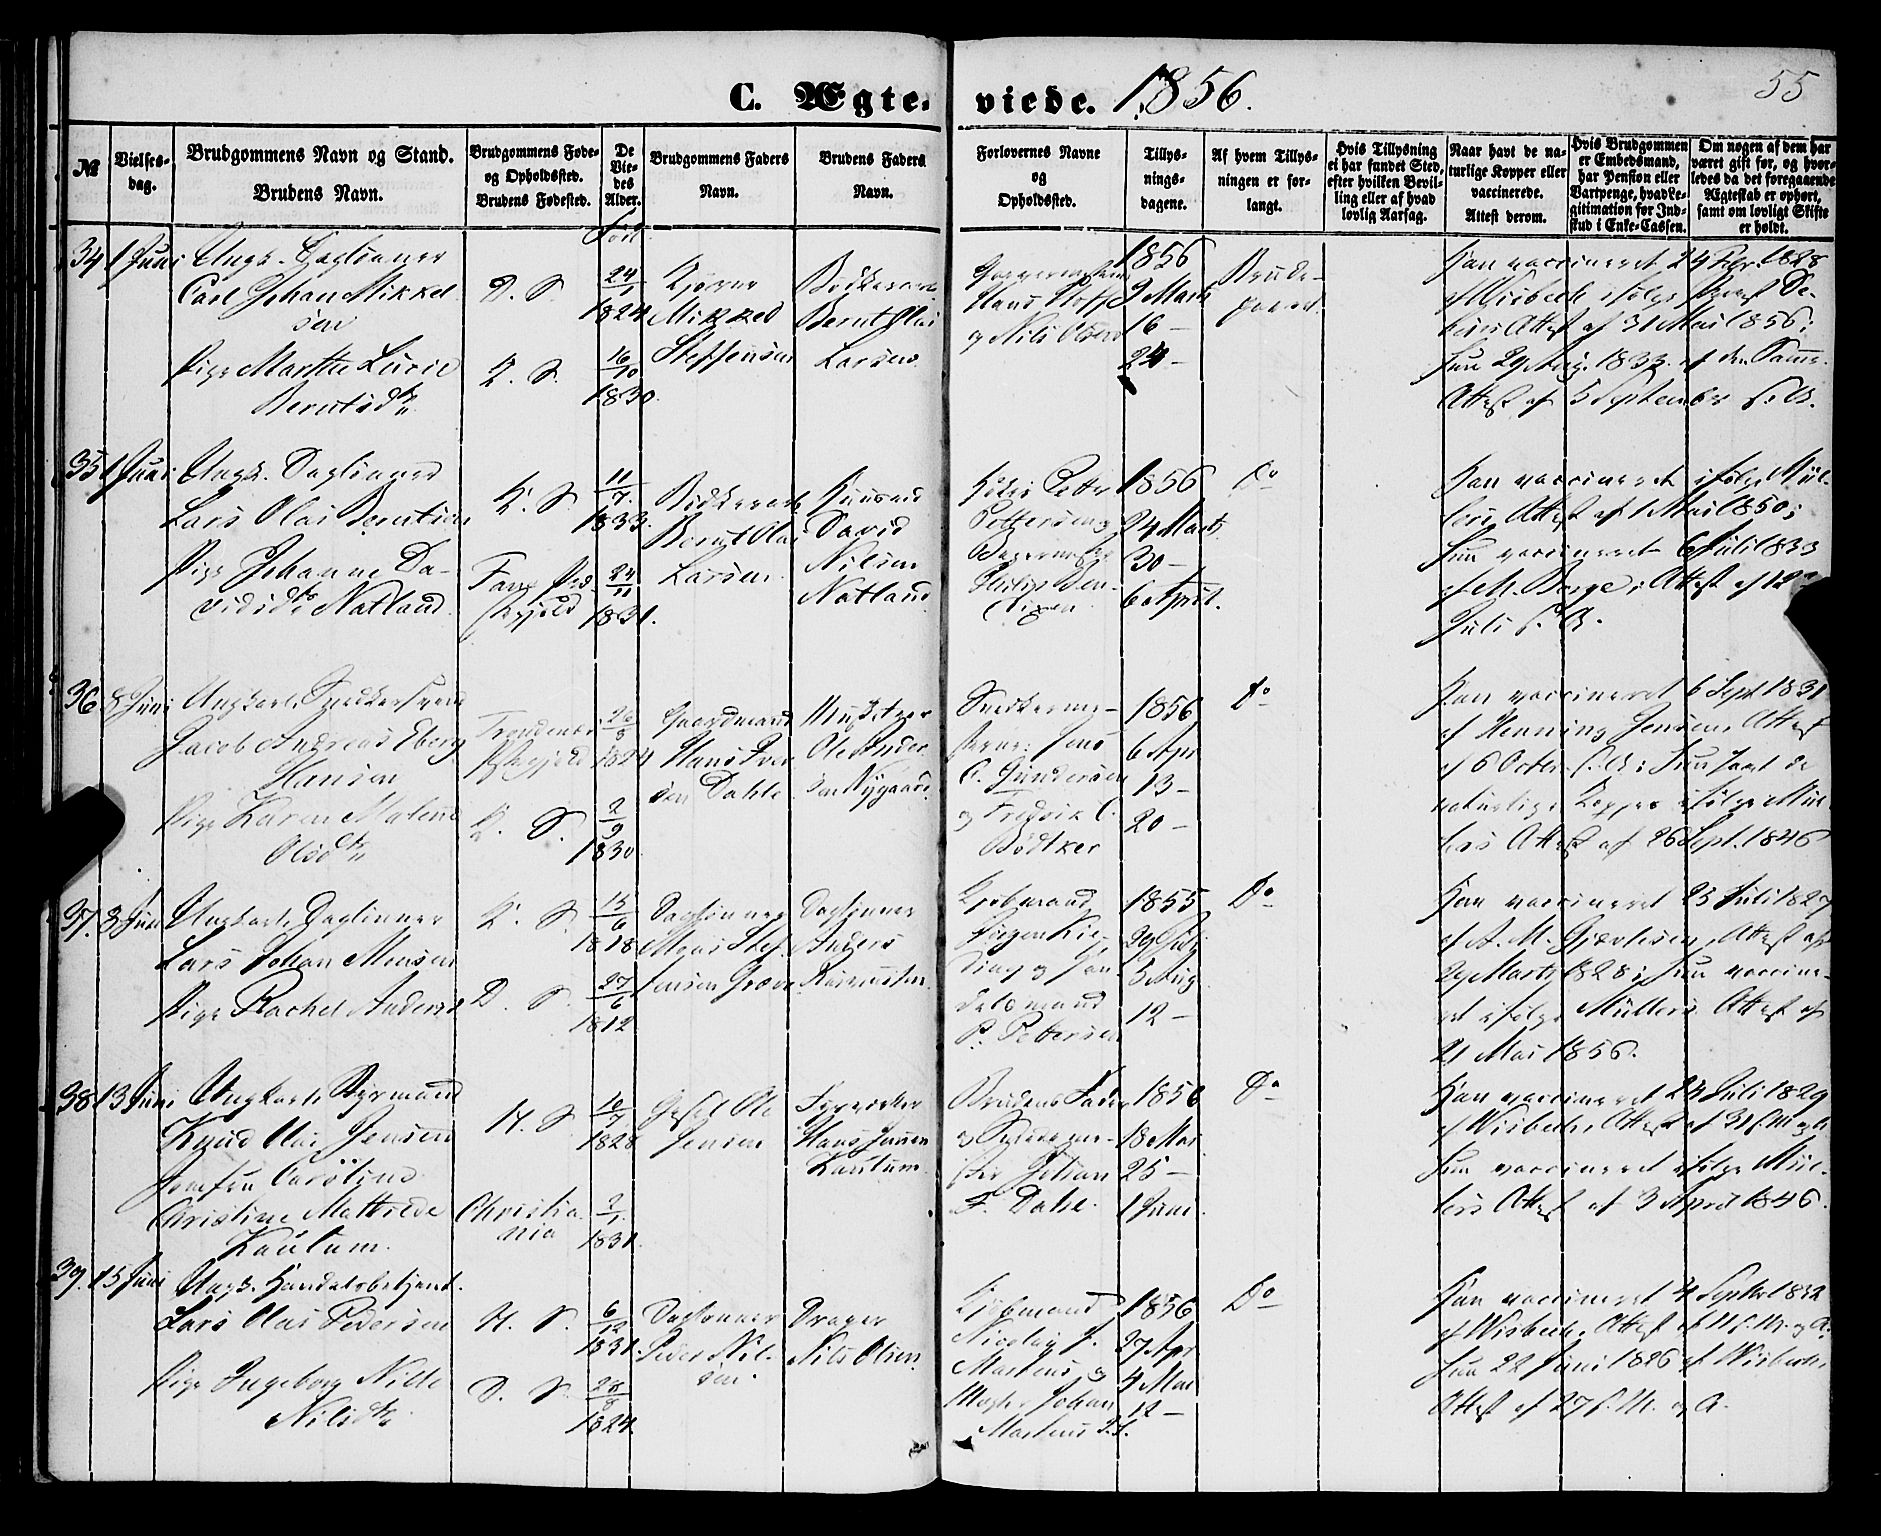 C. Ægte- viede. 1856.
55
№
Vielses-
dag.
Brudgommens Navn og Stand.
Brudens Navn.
Brudgommens Føde-
og Opholdssted.
Brudens Fødested.
De
Vie-
des
Alder.
Brudgommens Faders
Navn.
Brudens Faders
Navn.
Forlovernes Navne
og
Opholdssted.
Tillys-
nings-
dagene.
Af hvem Tillys-
ningen er for-
langt.
Hvis Tillysning
ei har fundet Sted,
efter hvilken Bevil-
ling eller af hvad
lovlig Aarsag.
Naar havt de na-
turlige Kopper eller
vaccinerede.
Attest derom.
Hvis Brudgommen
er Embedsmand,
har Pension eller
Vartpenge, hvad Le-
gitimation for Ind-
skud i Enke-Cassen.
Om nogen af dem har
været gift før, og hvor-
ledes da det foregaaende
Ægteskab er ophørt,
samt om lovligt Skifte
er holdt.
34 1 Juni
Ungk. Dagleiner
Carl Johan Mikkel-
sen
Pige Marthe Lucie
Berntsdtr
D. S.
Fød
24/1
1824
16/10
1830
Mikkel
Steffensen
Bødkersv.
Bernt Olai
Larsen
Hans
og Nils Olsen
1856
9 Marts
16 –
24 –
Brude-
parret.
Han vaccineret 24 1828
af Wisbech ifølge
Attest af 31 Mai 1856;
Hun 29 Aug. 1833 af den Samme
Attest af 5 September s. A.
35 1 Juni
Ungk. Dagleiner
Lars Olai Berntsen
Pige Johanne Da-
vidsdtr Natland
K. S.
11/7
1833
24/11
1831.
Bødkersv.
Bernt Olai
Larsen
Huusmd
David
Nilsen
Natland
Petter
Pettersen og
1856
24 Marts
30 –
6 April.
Do
Han vaccineret ifølge Mül-
lers Attest af 1 Mai 1850;
Hun vaccineret 6 Juli 1833
af M. Berge, Attest af 12
Juli s. A.
36 8 Juni
Ungkarl Snedkersvend
Jacob Andreas Eberg
Hansen
Pige Karen Malene
Olsdtr
Trondenæs
Præstegjeld
K. S.
26/8
1824
2/9
1830
Gaardmand
Hans Iver-
sen Dahle
Ole Ander-
sen Nygaard
Snedkerme-
sterne: Jens
C. Gundersen
og Fredrik C.
Bødtker
1856
6 Apr
13 –
20 –
Do
Han vaccineret 6 Sept 1831
af Henning Jensen, Attest
af 6 Octbr s. A.; Hun havt de
naturlige Kopper ifølge Mül-
lers Attest af 26 Sept. 1846
37. 8 Juni
Ungkarl Dagleiner
Lars Johan Monsen
Pige Rachel Andersd
K. S.
D. S.
15/6
1818
27/6
1812
Dagleiner
Mons Stef-
fensen Græve
Dagleiner
Anders
Rasmussen
Kjøbmand
Jørgen
og Han-
delsmand
P. Pettersen
1855
29 Juli
5 Aug
12 –
Do
Han vaccineret 23 Juli 1827
af A. M. Gjertsen, Attest af
29 Marts 1828; Hun vaccine-
ret ifølge Müllers Attest af
21 Mai 1856.
38 13 Juni
Ungkarl Styrmand
Knud Olai Jensen
Jomfru Caroline
Christine Mathilde
Kautum.
N. S.
Christia-
nia
10/7
1828
2/1
1831
Ole
Jensen
Fyrvogter
Hans Jensen
Kautum
Brudens Fader
og
Johan
F. Dahl.
1856
18 Mai
25 –
1 Juni
Do
Han vaccineret 24 Juli 1829
af Wisbech, Attest af 31 s. M og A
Hun vaccineret ifølge Mül-
lers Attest af 3 April 1846.
39. 15 Juni
Ungk. Handelsbetjent
Lars Olai Pedersen
Pige Ingeborg Nille
Nilsdtr
N. S.
D. S.
6/12
1831
28/8
1824
Dagleiner
Peder Nil-
sen
Drager
Nils Olsen
Kjøbmand
Nicolay J.
Martens og
Mægler Johan
Martens
1856
27 Apr
4 Mai
12 –
Do
Han vaccineret 4 Septbr 1832
af Wisbech, Attest af 11 s. M. og A.
Hun 22 Juni 1826 af Wisbech
Attest af 27 s. M. og A.